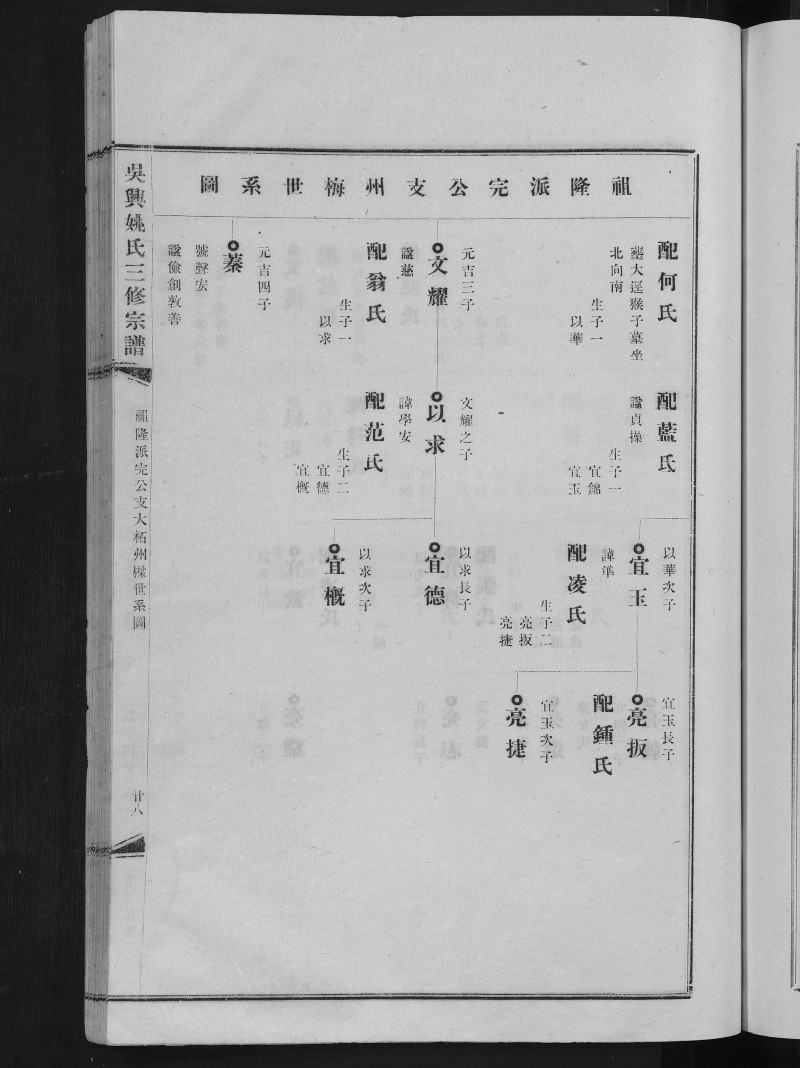 祖隆派完公支州梅世系圖
配何氏
墓大逕猴子墓坐
北向南
生子一
以華
元吉三子
文耀
諡慈
配翁氏
生子一
以求
元吉四子
蓁
號聲宏
諡儉創敦善
配藍氏
諡貞操
生子一
宜錦
宜玉
文耀之子
以求
諱學安
配范氏
生子二
宜德
宜概
以華次子
宜玉
諱準
配凌氏
生子二
亮扳
亮捷
以求長子
宜德
以求次子
宜概
宜玉長子
亮扳
配鍾氏
宜玉次子
亮捷
吳興姚氏三修宗譜
祖隆派完公支大柘州樑世系圖
廿八